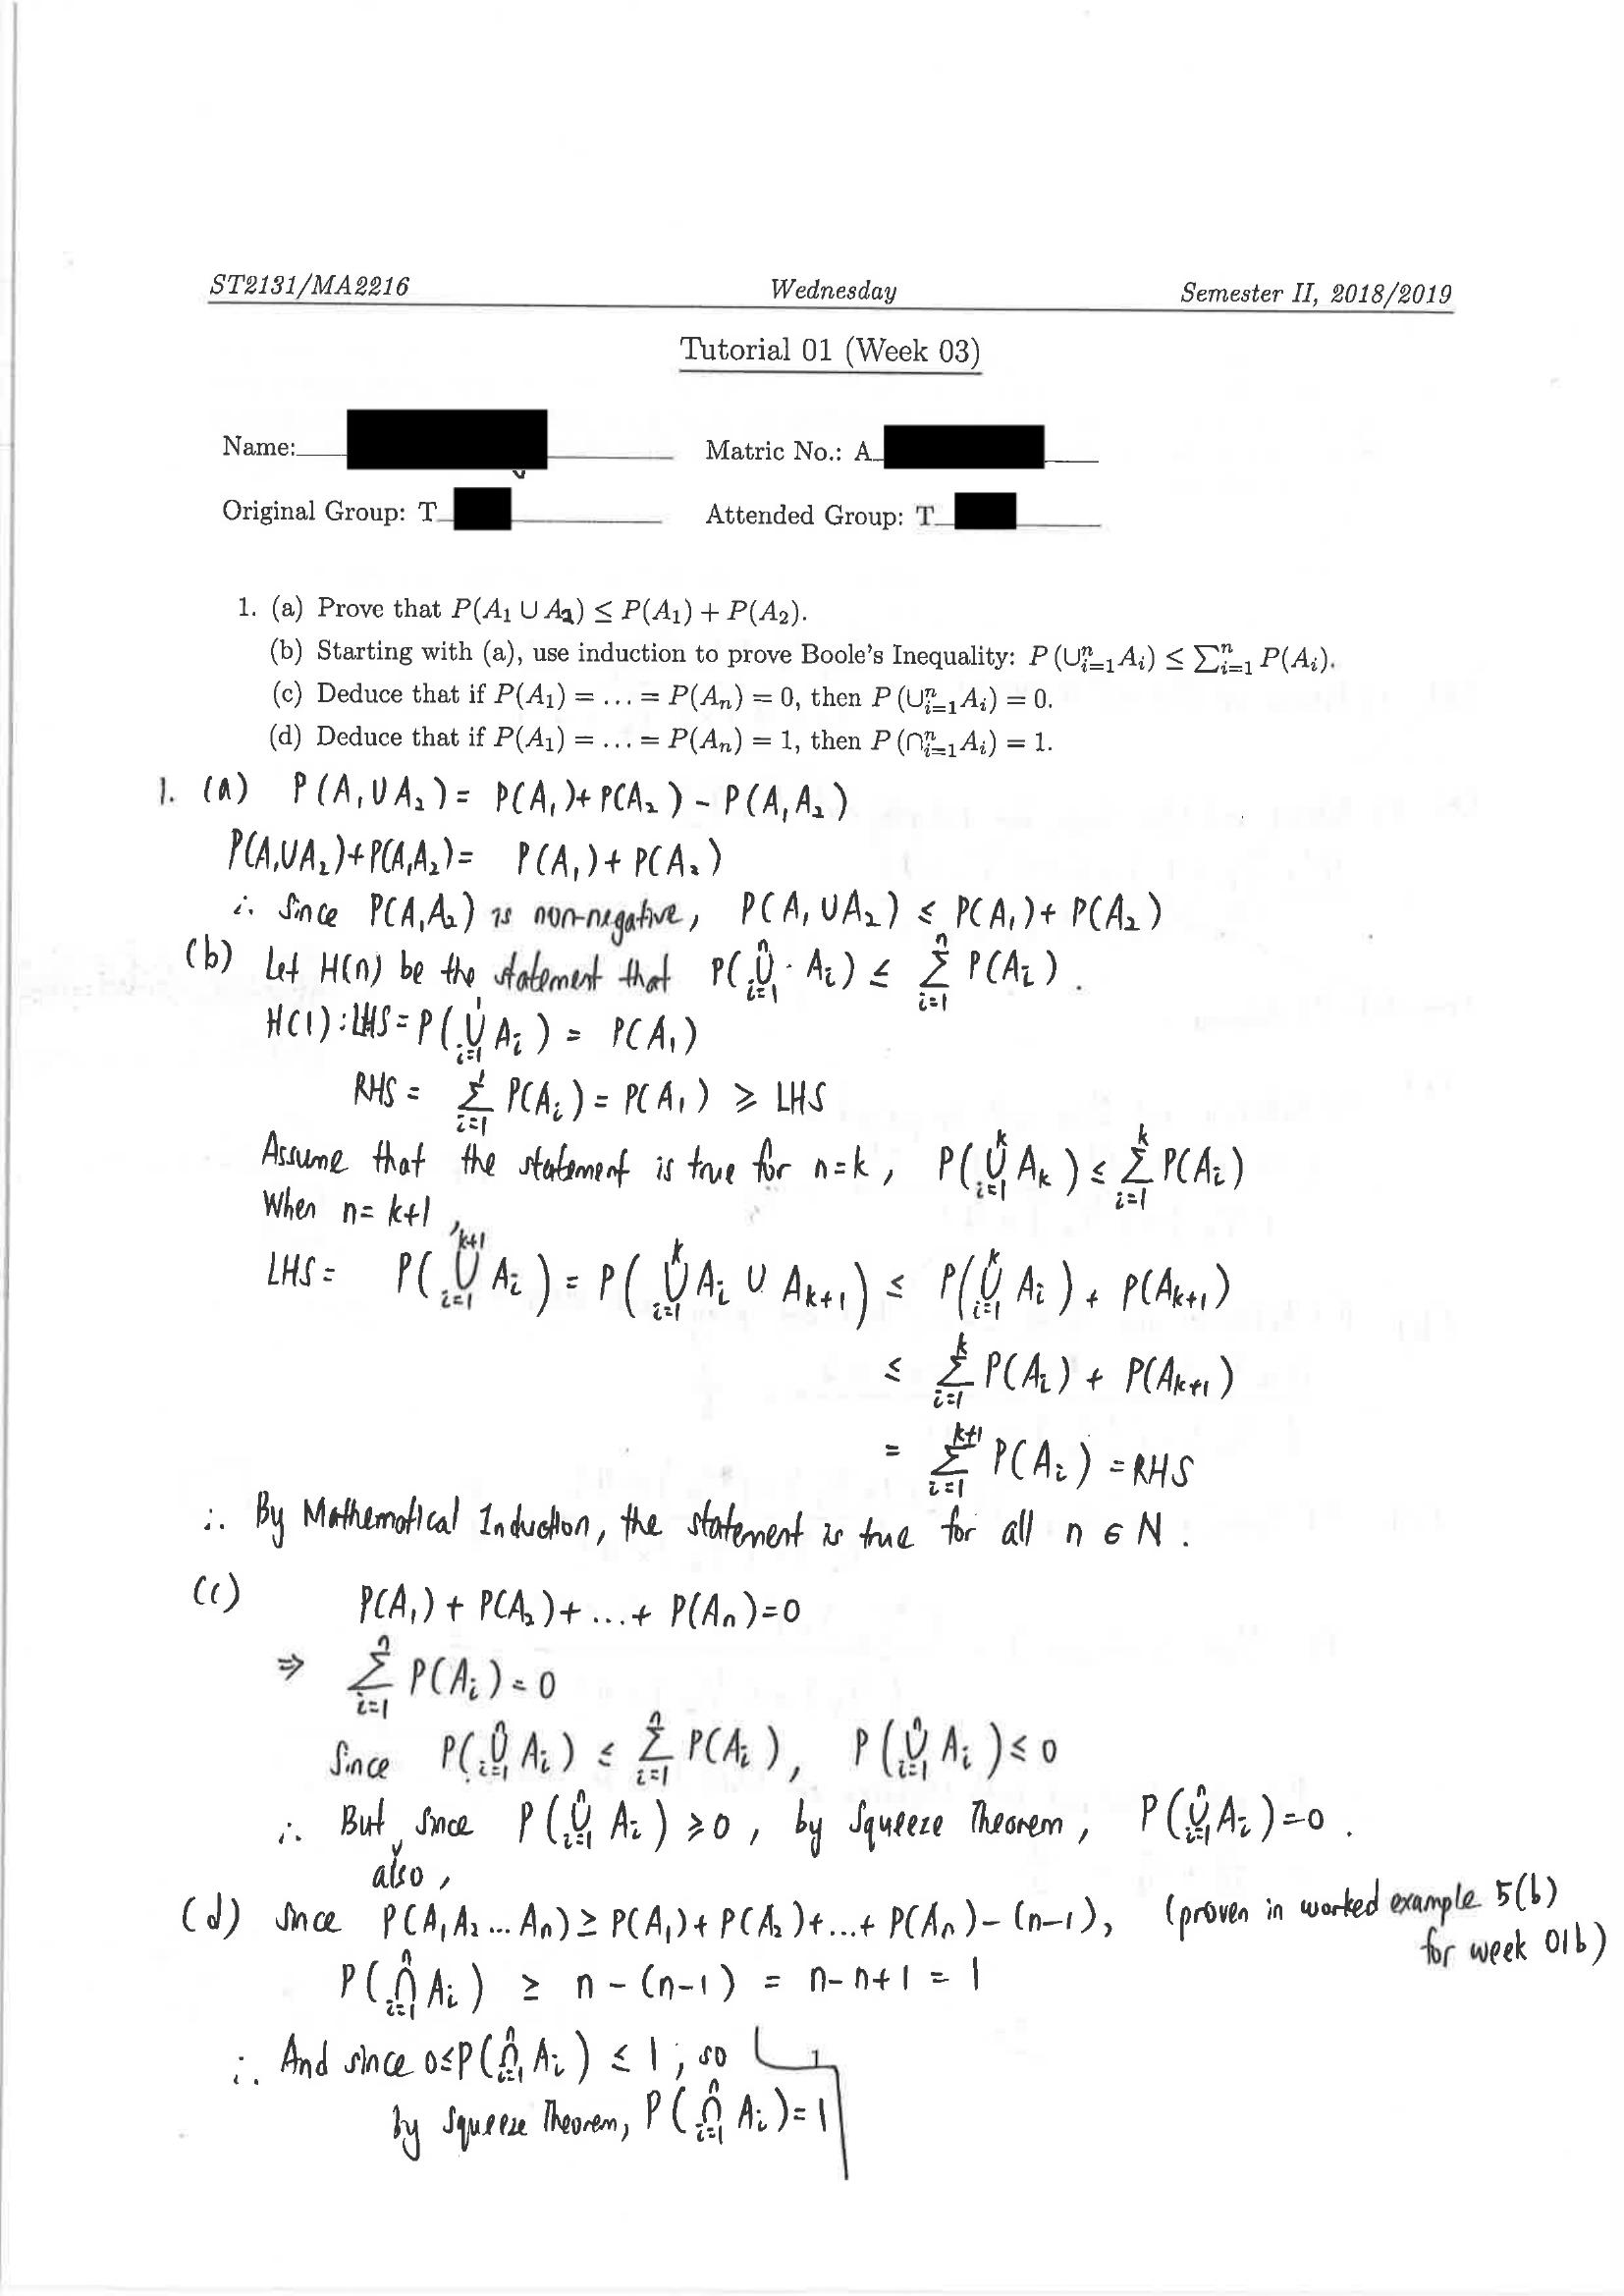 ST2131/MA2216 Wednesday Semester II, 2018/2019
Tutorial 01 (Week 03)
Name: Matric No.: A
Original Group: T Attended Group: T
1. (a) Prove that P(A₁ ∪ A₂) ≤ P(A₁) + P(A₂).
(b) Starting with (a), use induction to prove Boole's Inequality: P(∪ⁿᵢ₌₁Aᵢ) ≤ ∑ⁿᵢ₌₁ P(Aᵢ).
(c) Deduce that if P(A₁) = ... = P(Aₙ) = 0, then P(∪ⁿᵢ₌₁Aᵢ) = 0.
(d) Deduce that if P(A₁) = ... = P(Aₙ) = 1, then P(∩ⁿᵢ₌₁Aᵢ) = 1.
1. (a) P(A₁∪A₂) = P(A₁)+P(A₂) - P(A₁A₂)
P(A₁∪A₂)+P(A₁A₂) = P(A₁)+P(A₂)
∴ Since P(A₁A₂) is non-negative, P(A₁∪A₂) ≤ P(A₁)+P(A₂)
(b) Let H(n) be the statement that P(∪ⁿᵢ₌₁ · Aᵢ) ≤ ∑ⁿᵢ₌₁ P(Aᵢ).
H(1): LHS = P(∪¹ᵢ₌₁ Aᵢ) = P(A₁)
RHS = ∑¹ᵢ₌₁ P(Aᵢ) = P(A₁) ≥ LHS
Assume that the statement is true for n=k, P(∪ᵏᵢ₌₁ Aₖ) ≤ ∑ᵏᵢ₌₁ P(Aᵢ)
When n = k+1,
LHS = P(∪ᵏ⁺¹ᵢ₌₁ Aᵢ) = P(∪ᵏᵢ₌₁ Aᵢ ∪ Aₖ₊₁) ≤ P(∪ᵏᵢ₌₁ Aᵢ) + P(Aₖ₊₁)
≤ ∑ᵏᵢ₌₁ P(Aᵢ) + P(Aₖ₊₁)
= ∑ᵏ⁺¹ᵢ₌₁ P(Aᵢ) = RHS
∴ By Mathematical Induction, the statement is true for all n ∈ N.
(c) P(A₁) + P(A₂) + ... + P(Aₙ) = 0
⇒ ∑ⁿᵢ₌₁ P(Aᵢ) = 0
Since P(∪ⁿᵢ₌₁ Aᵢ) ≤ ∑ⁿᵢ₌₁ P(Aᵢ), P(∪ⁿᵢ₌₁ Aᵢ) ≤ 0
∴ But since P(∪ⁿᵢ₌₁ Aᵢ) ≥ 0, by Squeeze Theorem, P(∪ⁿᵢ₌₁ Aᵢ) = 0.
also,
(d) Since P(A₁A₂...Aₙ) ≥ P(A₁)+P(A₂)+...+P(Aₙ)-(n-1), (proven in worked example 5(b)
for week 01b)
P(∩ⁿᵢ₌₁ Aᵢ) ≥ n-(n-1) = n-n+1 = 1
∴ And since 0≤P(∩ⁿᵢ₌₁ Aᵢ) ≤ 1, so
by Squeeze Theorem, P(∩ⁿᵢ₌₁ Aᵢ) = 1